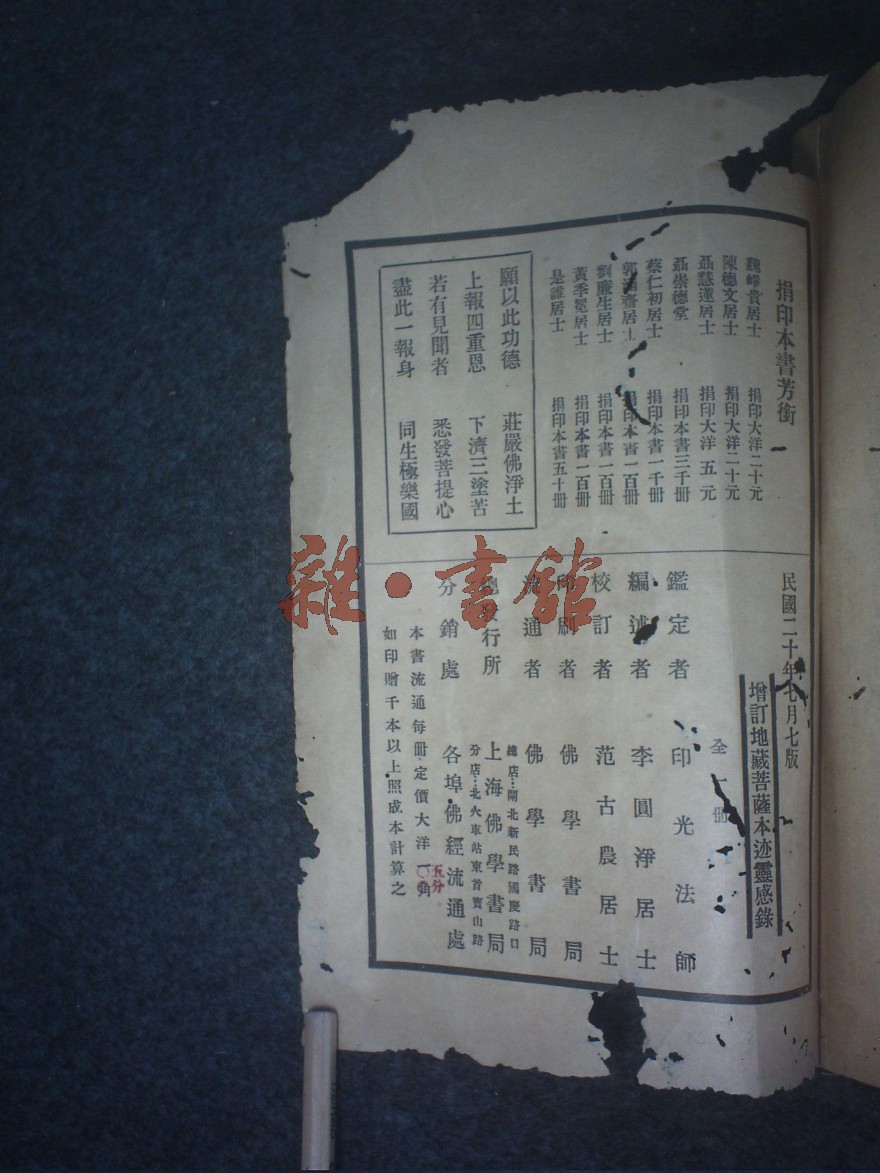 捐印本書芳銜
魏嶂貴居士　捐印大洋二十元
陳德文居士　捐印大洋二十元
聶慧蓮居士　捐印大洋五元
聶崇德堂　捐印本書三千冊
蔡仁初居士　捐印本書一千冊
郭涵齋居士　捐印本書一百冊
劉廉生居士　捐印本書一百冊
黃季冕居士　捐印本書一百冊
是誰居士　捐印本書五十冊
願以此功德　莊嚴佛淨土
上報四重恩　下濟三塗苦
若有見聞者　悉發菩提心
盡此一報身　同生極樂國
民國二十年七月七版
增訂地藏菩薩本迹靈感錄
全一冊
鑑定者　印光法師
編述者　李圓淨居士
校訂者　范古農居士
印刷者　佛學書局
流通者　佛學書局
總發行所　上海佛學書局
總店：閘北新民路國慶路口
分店：北火車站東首寶山路
分銷處　各埠佛經流通處
本書流通每冊定價大洋一角
五分
如印贈千本以上照成本計算之
雜·書館